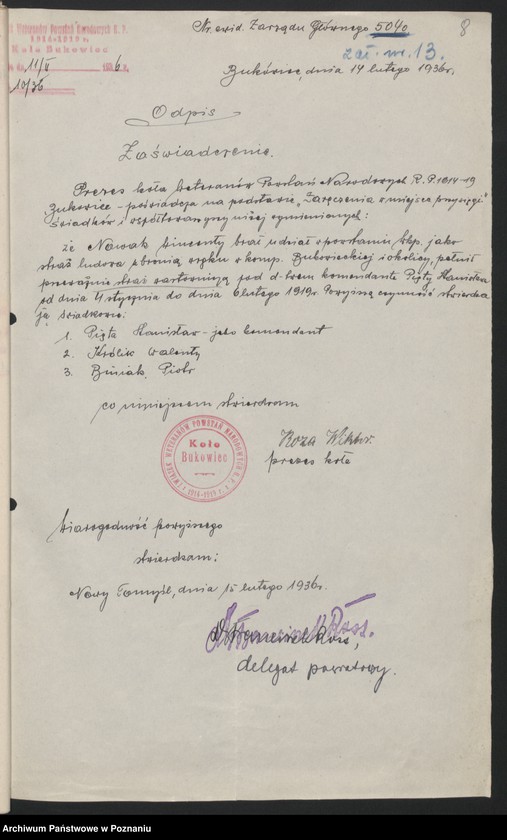 Powstań Narodowych R. P.
1914-1919 r.
Koło Bukowiec
dn. 11/II 1936 r.
10/36
Nr. ewid. Zarządu Głównego 5040
8
zał. nr. 13.
Bukówiec, dnia 14 lutego 1936r.
Odpis
Zaświadczenie.
Prezes koła Weteranów Powstań Narodowych R. P. 1914-19
Bukowiec - poświadcza na podstawie "Zaręczenia w miejsce przysięgi"
świadków i współtowarzyszy niżej wymienionych:
że Nowak Wincenty brał udział w powstaniu Wkp. jako
straż ludowa z bronią w ręku w komp. Bukowieckiej i okolicy, pełnił
przeważnie straż wartowniczą pod d-twem komendanta Pięty Stanisława
od dnia 4 stycznia do dnia 6 lutego 1919r. Powyższą czynność stwierdza
ją świadkowie:
1. Pięta Stanisław - jako komendant
2. Królik Walenty
3. Biniak Piotr
co niniejszem stwierdzam
ZWIĄZEK WETERANÓW POWSTAŃ NARODOWYCH R. P.
1914-1919 r.
Koło
Bukowiec
Koza Wiktor
prezes koła
Wiarogodność powyższego
stwierdzam:
Nowy Tomyśl, dnia 15 lutego 1936r.
delegat powiatowy.
Archiwum Państwowe w Poznaniu